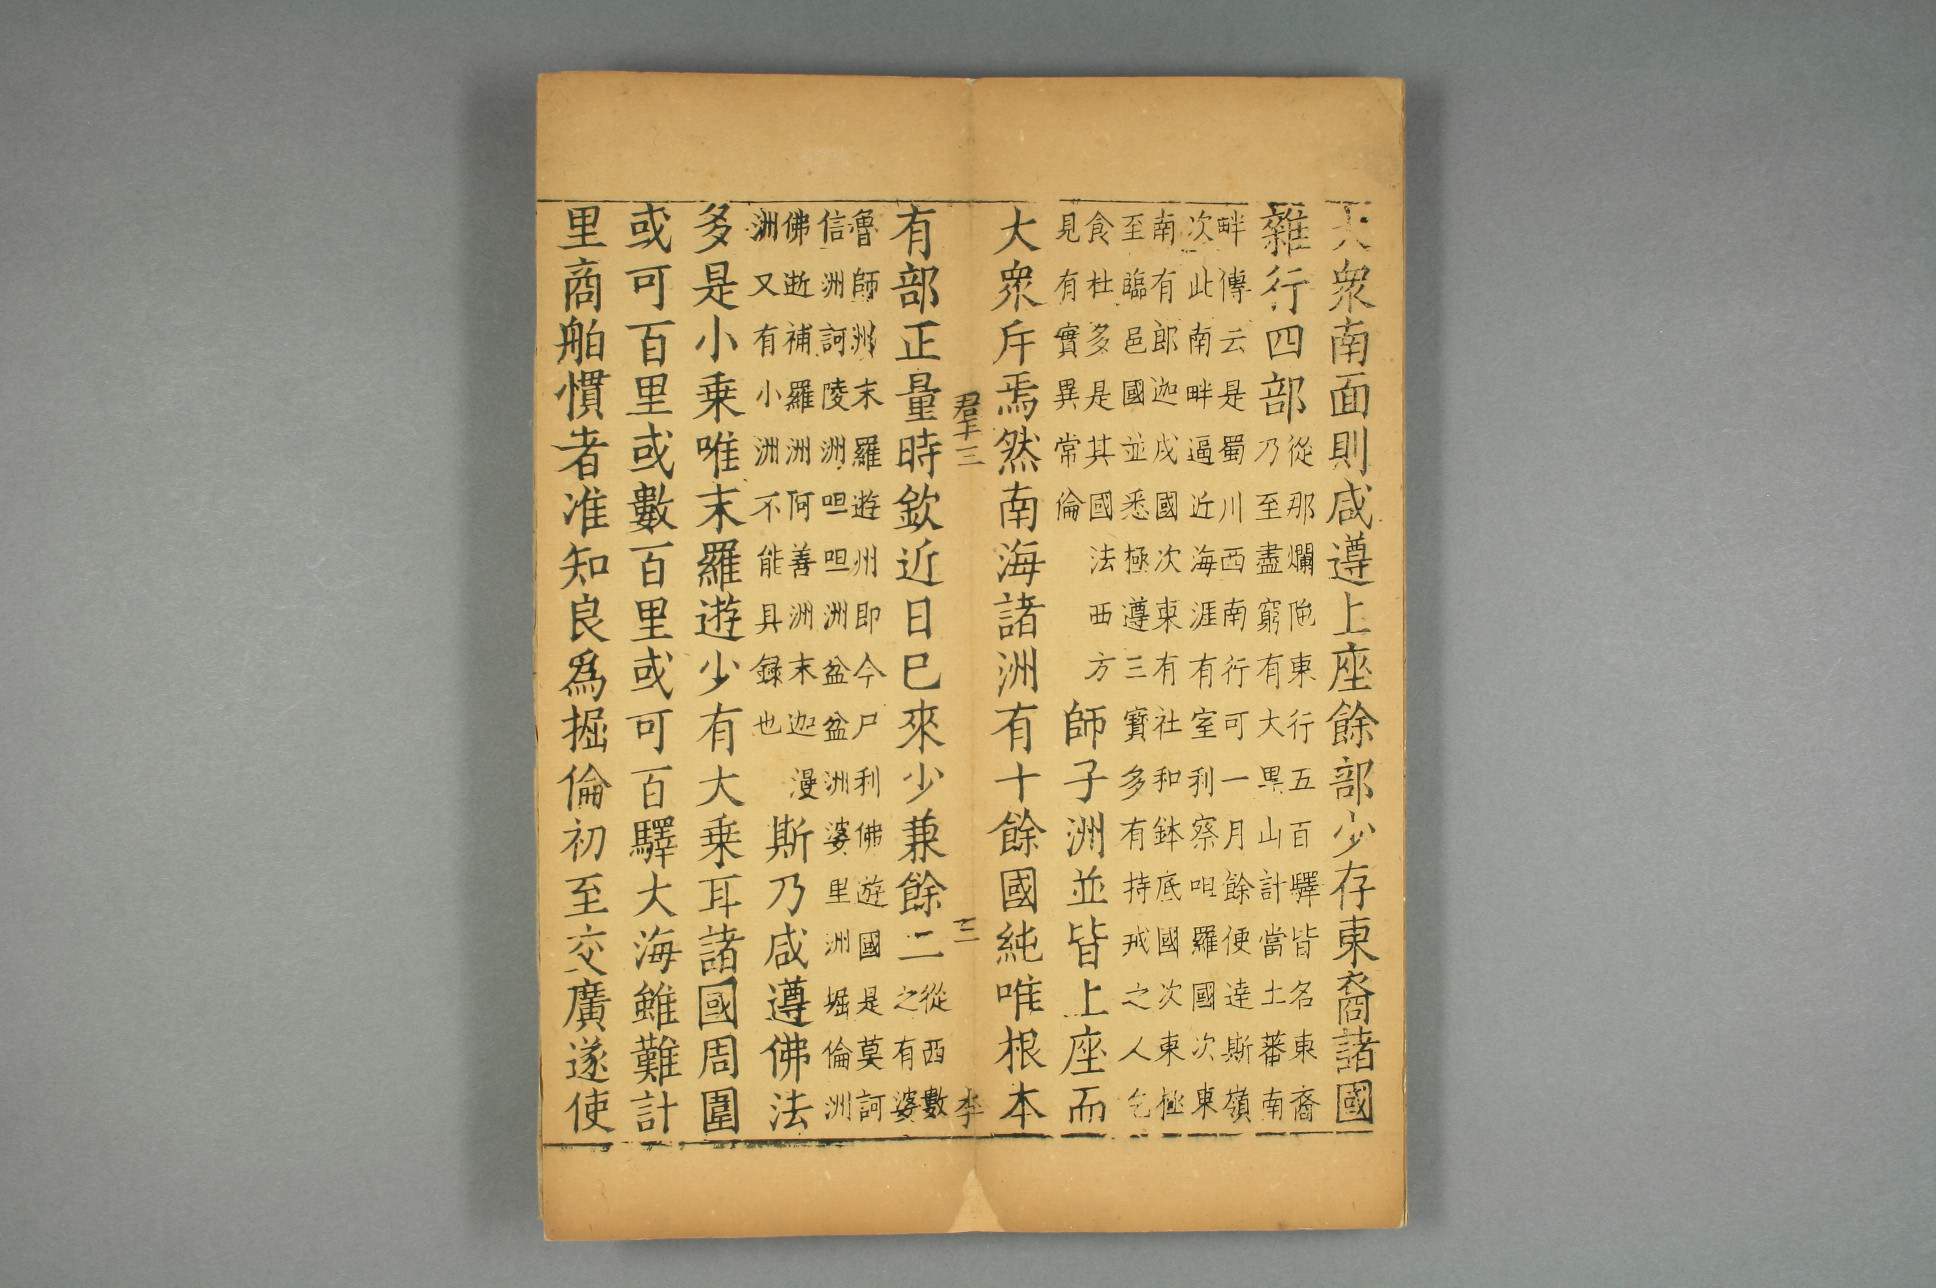 大衆南面則咸遵上座餘部少存東裔諸國
雜行四部從那爛陁東行五百驛皆名東裔
乃至盡窮有大黑山計當土蕃南
畔傳云是蜀川西南行可一月餘便達斯嶺
次此南畔逼近海涯有室利察呾羅國次東
南有郎迦戍國次東有社和鉢底國次東極
至臨邑國並悉極遵三寶多有持戒之人乞
食杜多是其國法西方
見有實異常倫
師子洲並皆上座而
大衆斥焉然南海諸洲有十餘國純唯根本
羣三 三 李
有部正量時欽近日已來少兼餘二從西數
之有婆
魯師洲末羅遊州即今尸利佛遊國是莫訶
信洲訶陵洲呾呾洲盆盆洲婆里洲掘倫洲
佛逝補羅洲阿善洲末迦漫
洲又有小洲不能具録也
斯乃咸遵佛法
多是小乗唯末羅遊少有大乗耳諸國周圍
或可百里或數百里或可百驛大海雖難計
里商舶慣者准知良爲掘倫初至交廣遂使